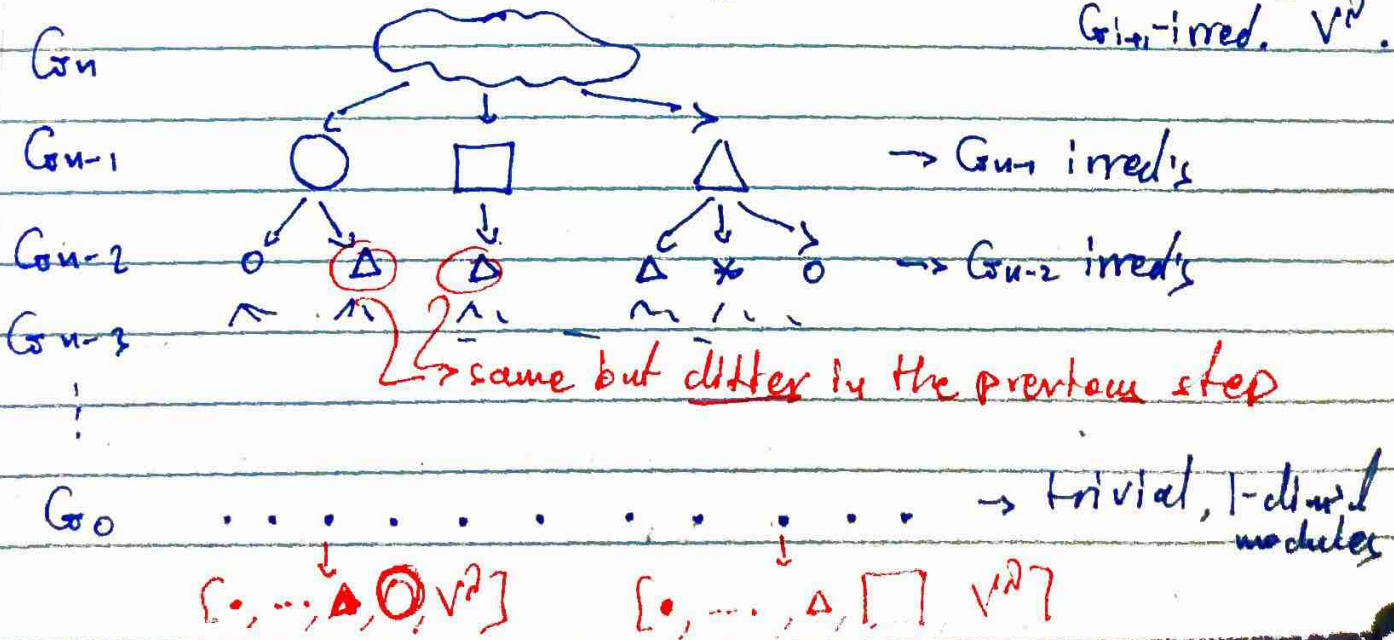 G_{i+1}-irred. V^λ.
G_n
G_{n-1} → G_{n-1} irred's
G_{n-2} → G_{n-2} irred's
G_{n-3}
same but differ in the previous step
G_0 → trivial, 1-dim'l
modules
[•, ..., △, ○, V^λ] [•, ..., △, □ V^λ]